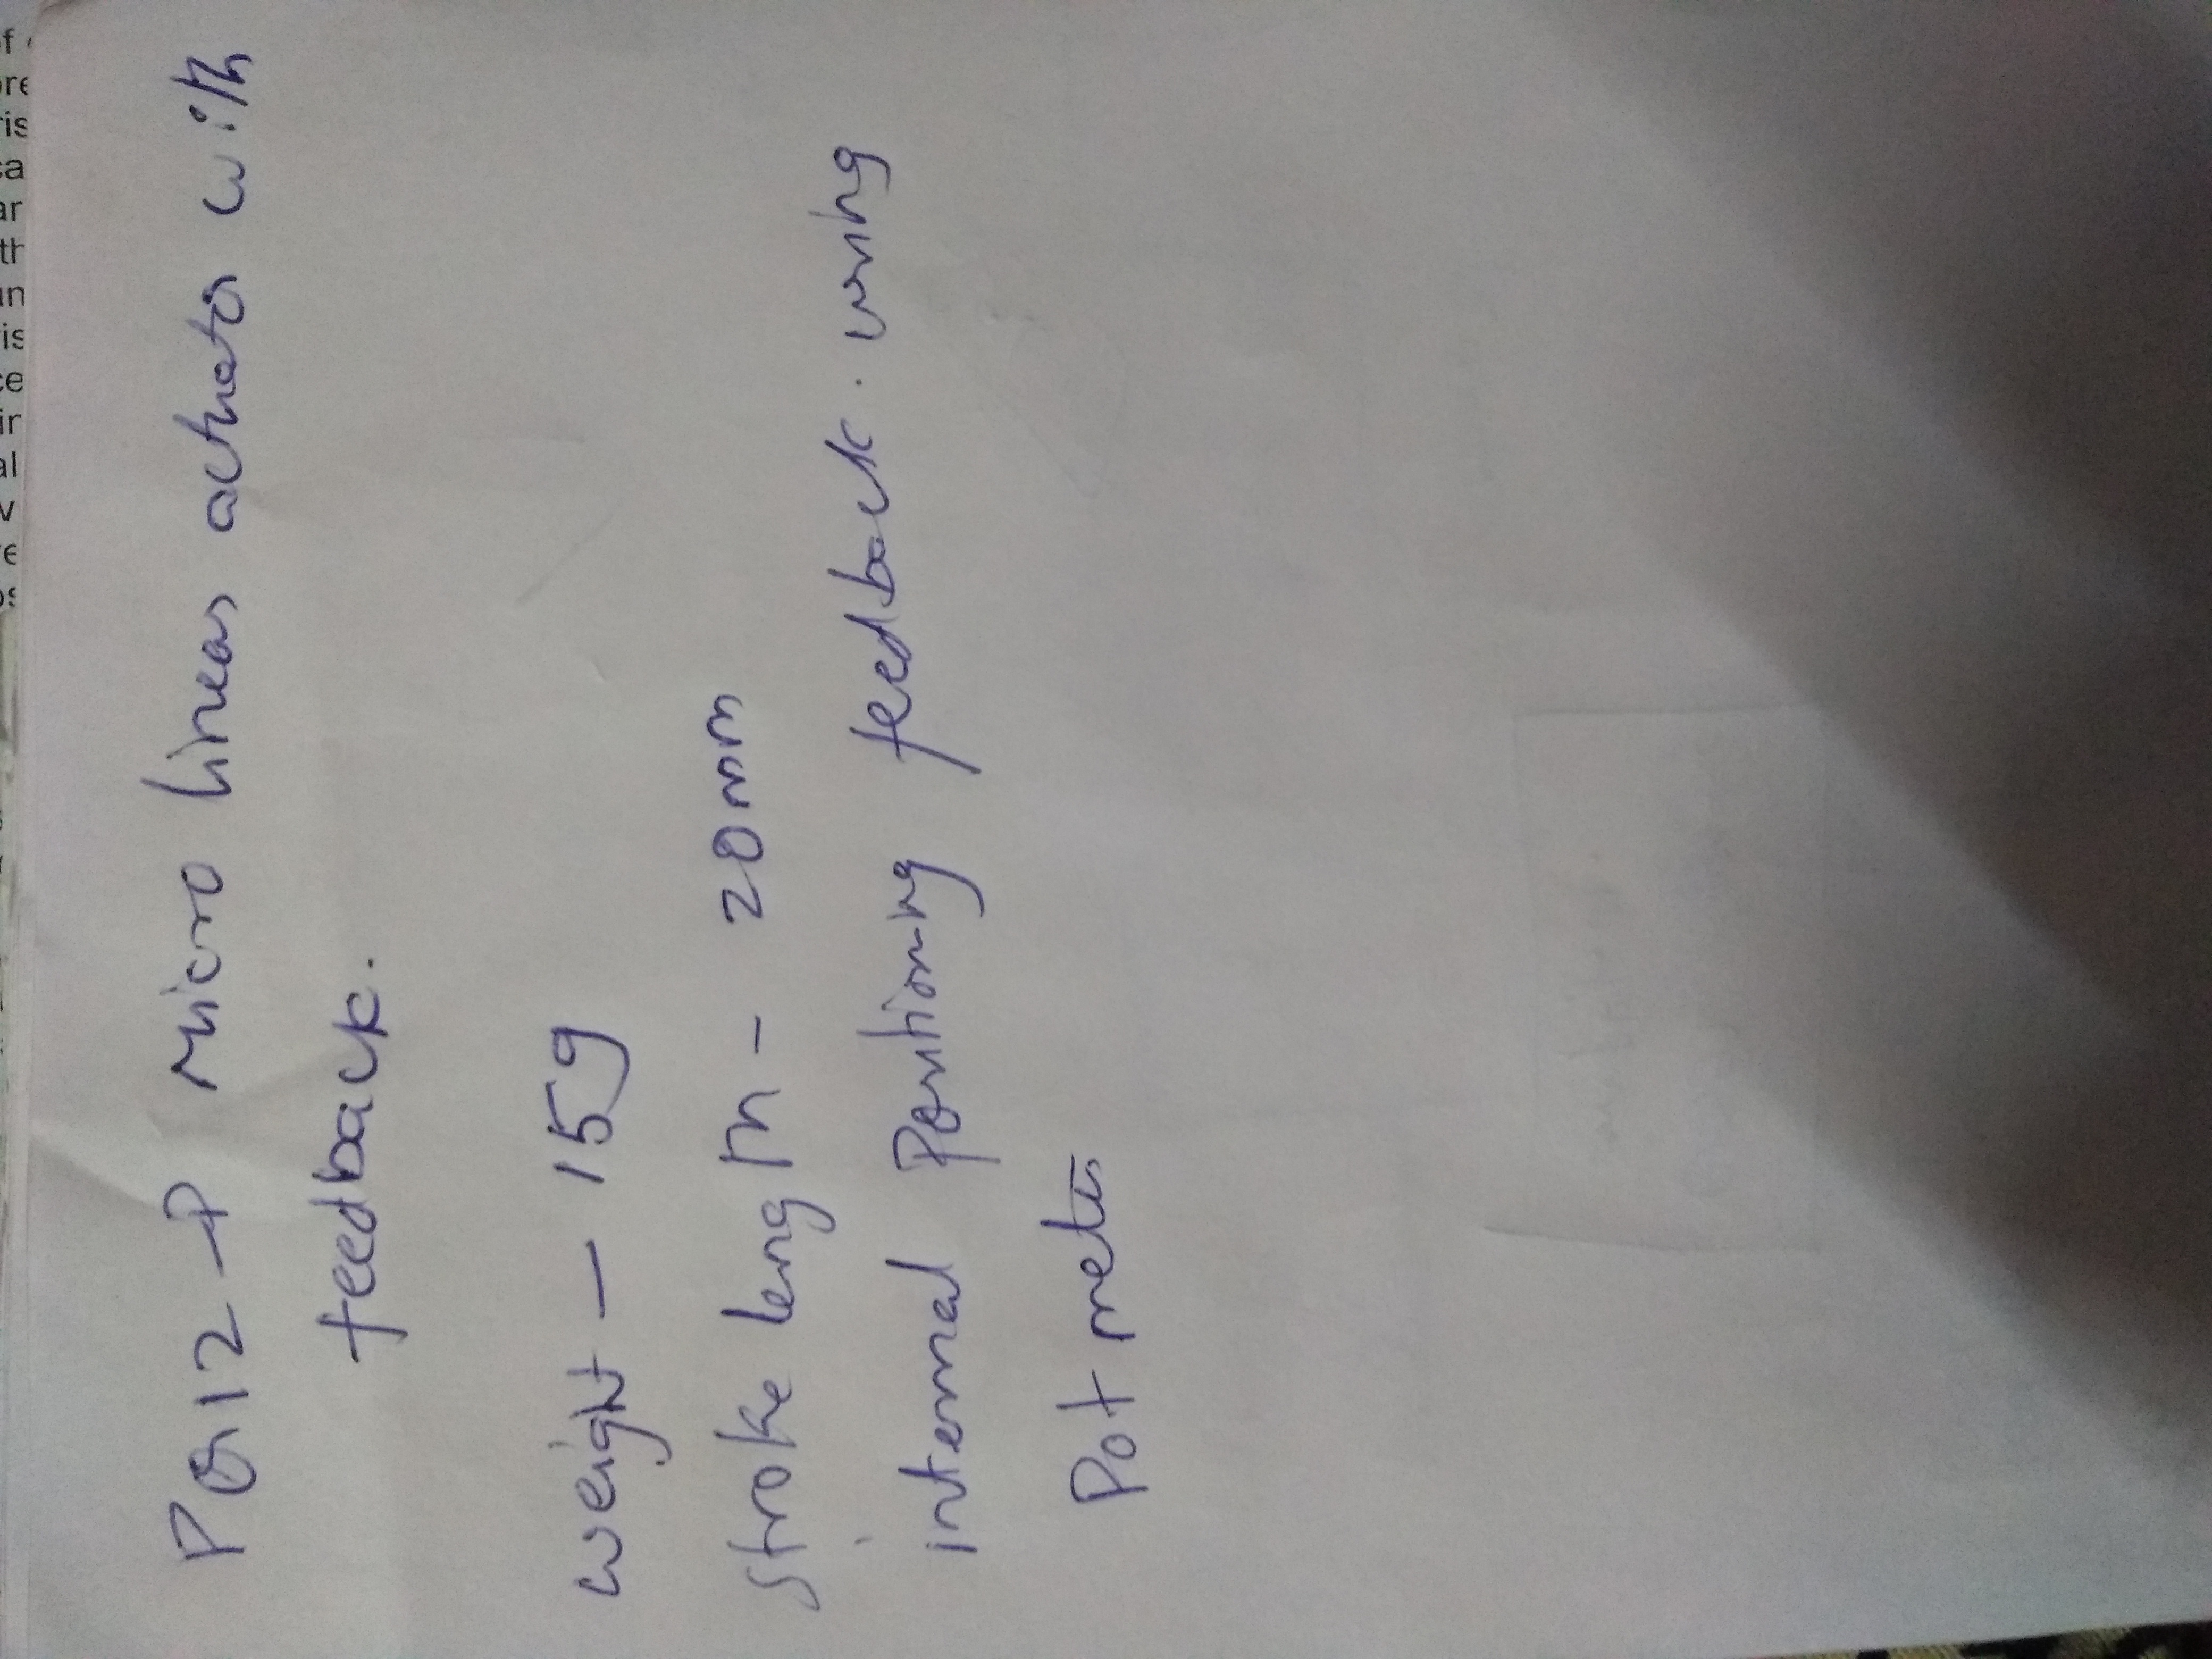 PQ12-P Micro linear actuator with
feedback.
weight - 15g
stroke length - 20mm
internal Positioning feedback. using
Pot meter